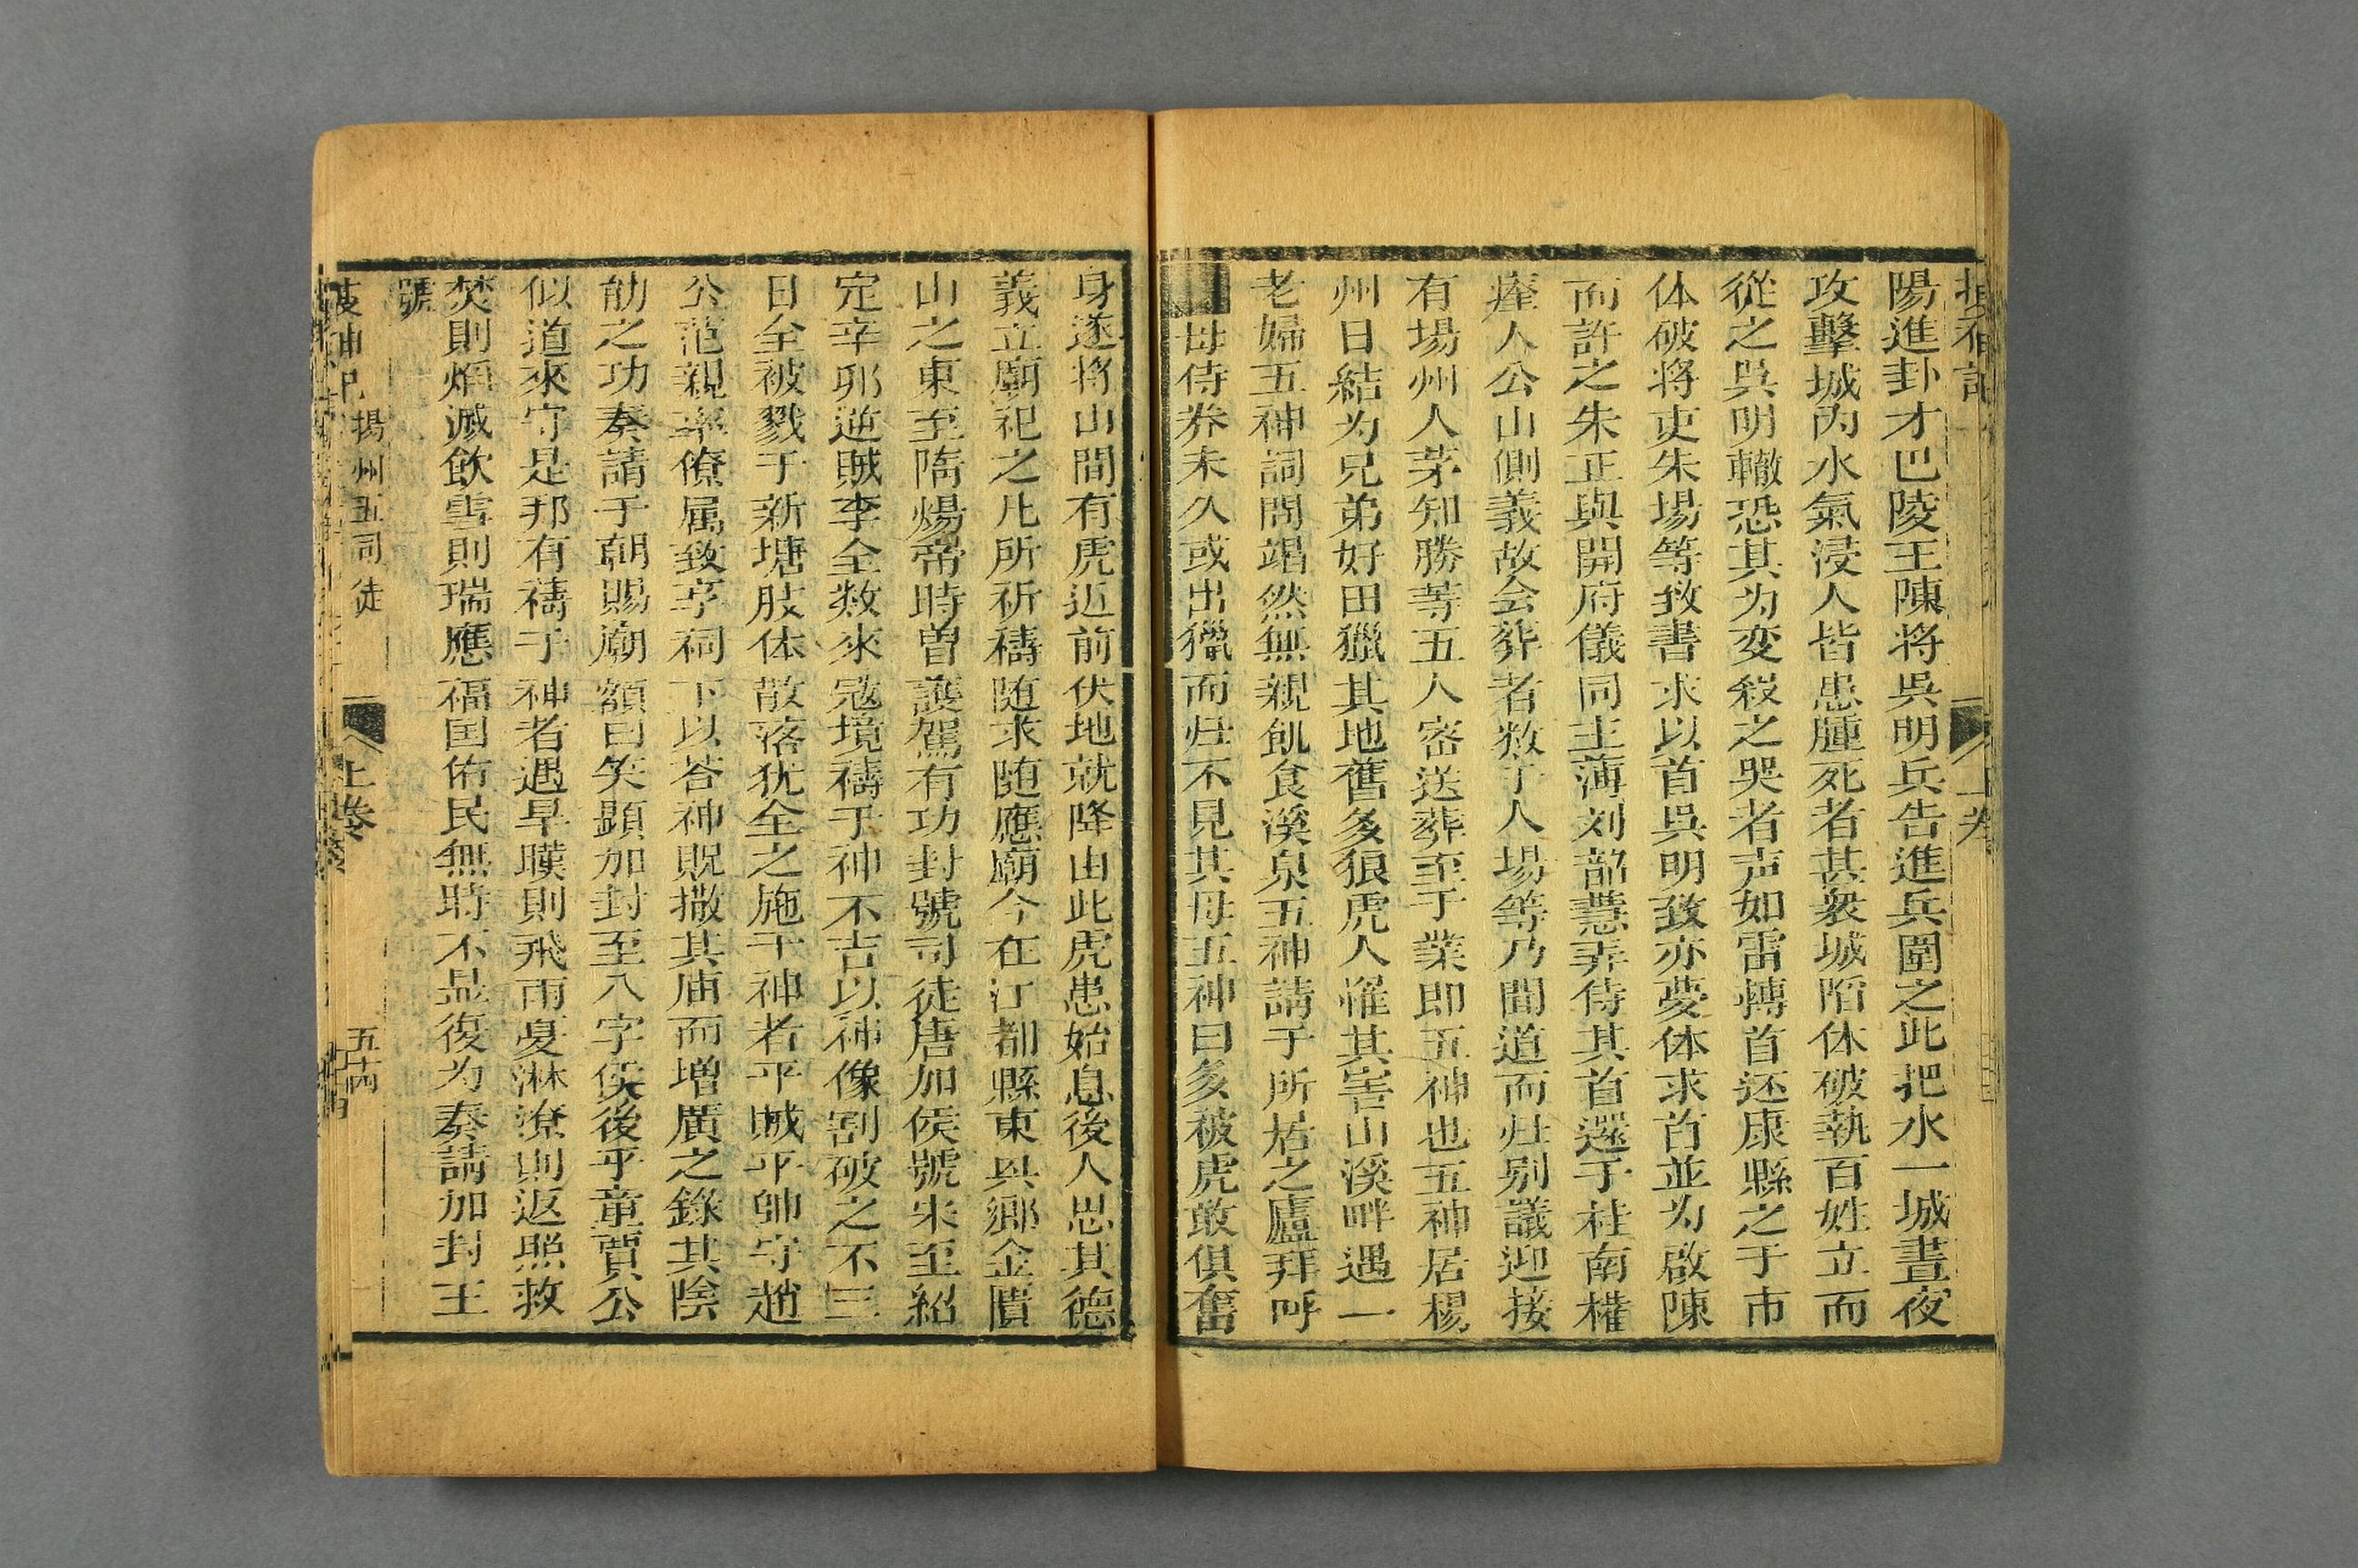 陽進卦才巴陵王陳将吳明兵告進兵圍之此把水一城晝夜
攻擊城内水氣浸人皆患腫死者甚衆城陷休破執百姓立而
從之吳明轍恐其为变殺之哭者声如雷轉首还康縣之于市
体破将吏朱場等致書求以首吳明致亦夢体求首並为啟陳
而許之朱正與開府儀同主薄刘韶慧弄侍其首還于桂南權
瘞人公山側義故会葬者数千人場等乃間道而㱕别議迎接
有場州人茅知勝等五人密送葬至于業即五神也五神居楊
州日結为兄弟好田獵其地舊多狼虎人惟其害山溪畔遇一
老婦五神詞問竭然無親飢食溪泉五神請于所居之廬拜呼
母侍养未久或出獵而㱕不見其母五神曰多被虎敢俱奮
身遂将山間有虎近前伏地就降由此虎患始息後人思其德
義立廟祀之凡所祈禱随求随應廟今在江都縣東兴鄉金匱
山之東至隋煬帝時曽護駕有功封號司徒唐加侯號宋至紹
定辛卯逆賊李全数來寇境禱于神不吉以神像割破之不三
日全被戮于新塘肢体散落犹全之施于神者平賊平帥守趙
公范親率僚属致享祠下以荅神貺撒其庙而增廣之錄其陰
助之功奏請于朝賜廟額曰笑顯加封至八字侯後平童賈公
似道來守是邦有禱于神者遇旱暵則飛雨夏淋潦則返照救
焚則烟滅飲雪則瑞應福国佑民無時不显復为奏請加封王
號
搜神記 揚州五司徒 上卷 五十四